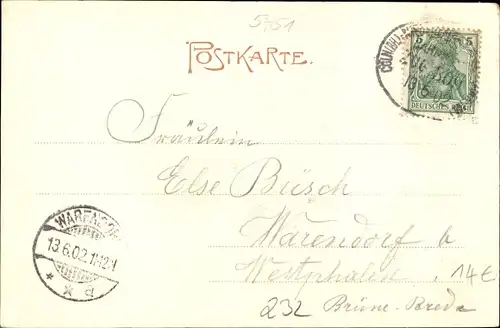 5,51
POSTKARTE.
5 5
DEUTSCHES REICH
Fräulein
Else Büsch
Warendorf b
Westphalen.
14€
232 Brüne-Breda
WARENDORF
13.6.02.11-12V